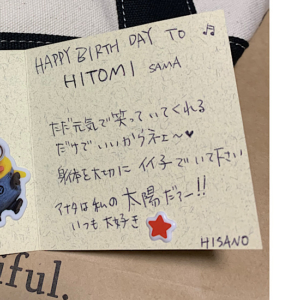 HAPPY BIRTH DAY TO
HITOMI SAMA
ただ元気で笑っていてくれる
だけでいいからネェ〜♥
身体を大切に イイ子でいて下さい
アナタは私の太陽だァー!!
いつも大好き
HISANO
iful.